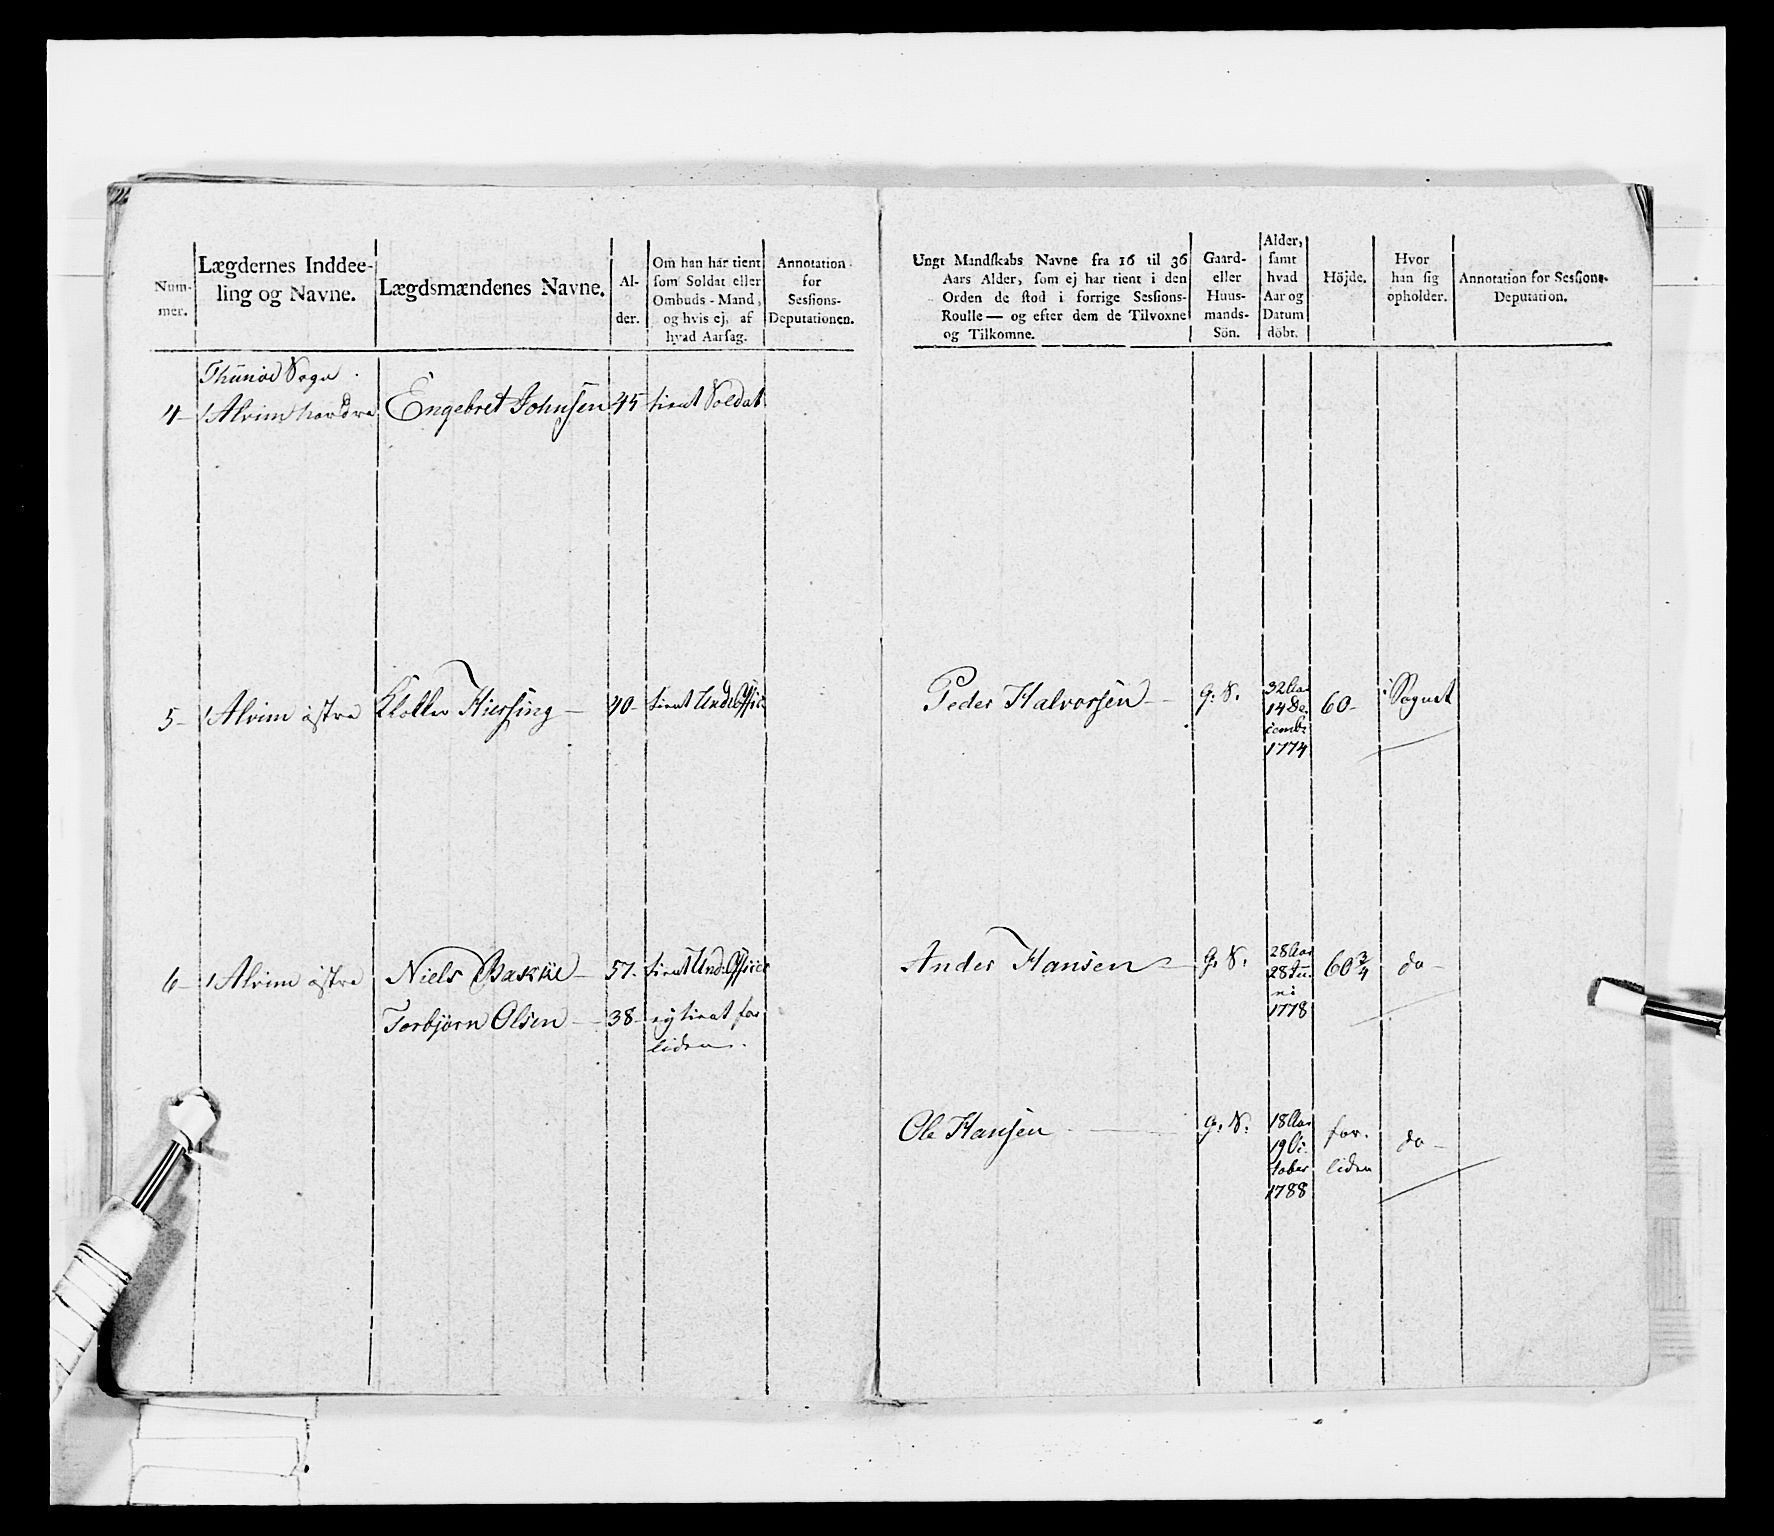 Num-
mer.
Lægdernes Inddee-
ling og Navne.
Lægdsmændenes Navne.
Al-
der.
Om han har tient
som Soldat eller
Ombuds-Mand,
og hvis ej, af
hvad Aarsag.
Annotation
for
Sessions-
Deputationen.
Ungt Mandskabs Navne fra 16 til 36
Aars Alder, som ej har tient i den
Orden de stod i forrige Sessions-
Roulle — og efter dem de Tilvoxne
og Tilkomne.
Gaard-
eller
Huus-
mands-
Sön.
Alder,
samt
hvad
Aar og
Datum
döbt.
Höjde.
Hvor
han sig
opholder.
Annotation for Sessions-
Deputation.
Thunøe Sogn
4- 1 Alvim nordre Engebret Johnsen 45 tient Soldat
5- 1 Alvim østre Hiorssing - 40- tient Und:Officr
Peder Halvorsen - G. S. 32 Aar
14 De-
cembr
1774
60- i Sognet
6- 1 Alvim østre Niels Bakke - 57- tient Und:Officer
Torbjørn Olsen - 38- ej tient for
liden.
Ander Hansen - G. S. 28 Aar
28 Ju-
ni
1778
60 3/4 do-
Ole Hansen - G. S. 18 Aar
19 Oc-
tober
1788
for-
liden
do-